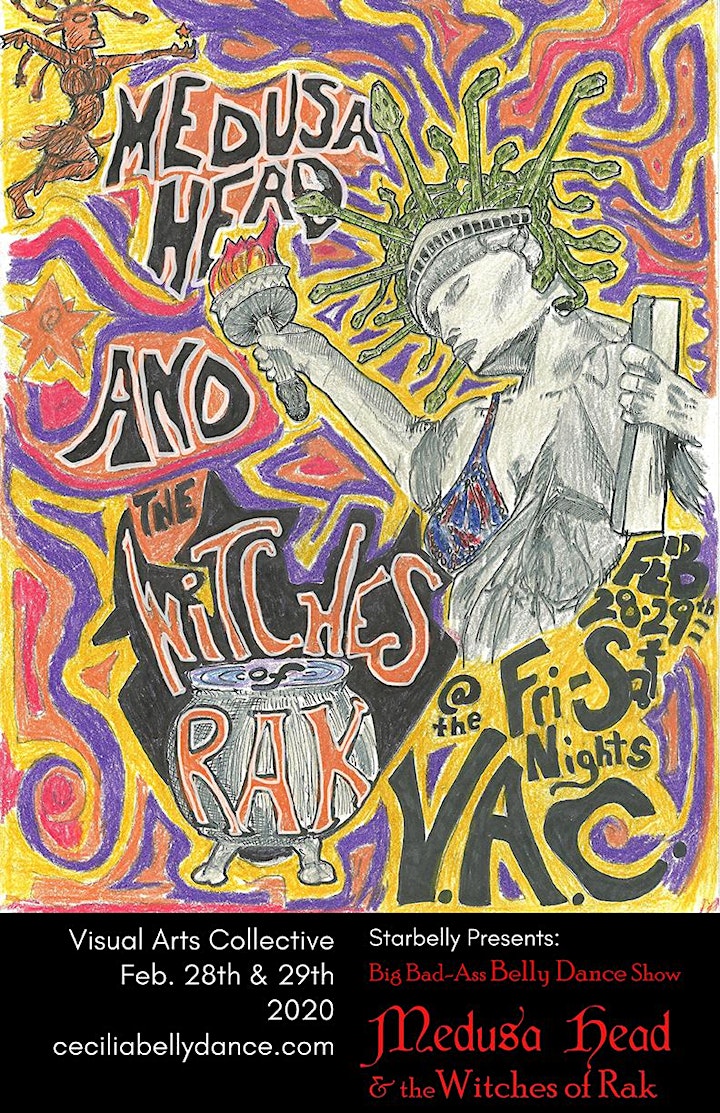 MEDUSA
HEAD
AND
THE
WITCHES
OF
RAK
FEB
28·29th
@ the
Fri-Sat
Nights
V.A.C.
Visual Arts Collective
Feb. 28th & 29th
2020
ceciliabellydance.com
Starbelly Presents:
Big Bad-Ass Belly Dance Show
Medusa Head
& the Witches of Rak